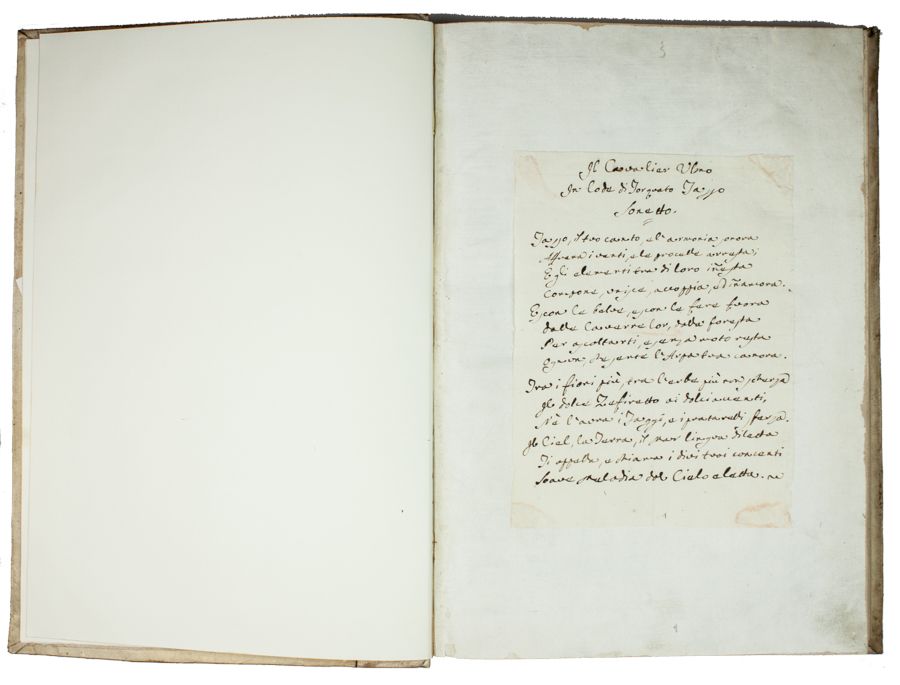 Il Cavalier Vbno
In lode di Torquato Tasso
Sonetto.
Tasso, il tuo canto, e l'armonia onora
Affrena i venti, e le procelle arresta;
E gli elementi tra di loro in
Compone, unisce, accoppia, ed in̄amora.
Escon le belve, escon le fere fuora
dalle Caverne lor, dalla foresta
Per ascoltarti, e senza moto resta
che sente l'Arpa tua canora.
Tra i fiori più, tra l'erbe più non scherza
Il dolce Zefiretto ai dolci
Nè l'aura i Faggi, e i pratarelli sferza.
Il Ciel, la Terra, il mar lingua diletta
Ti appella, e chiama i divi tuoi concenti
Soave Melodia dal Cielo eletta.